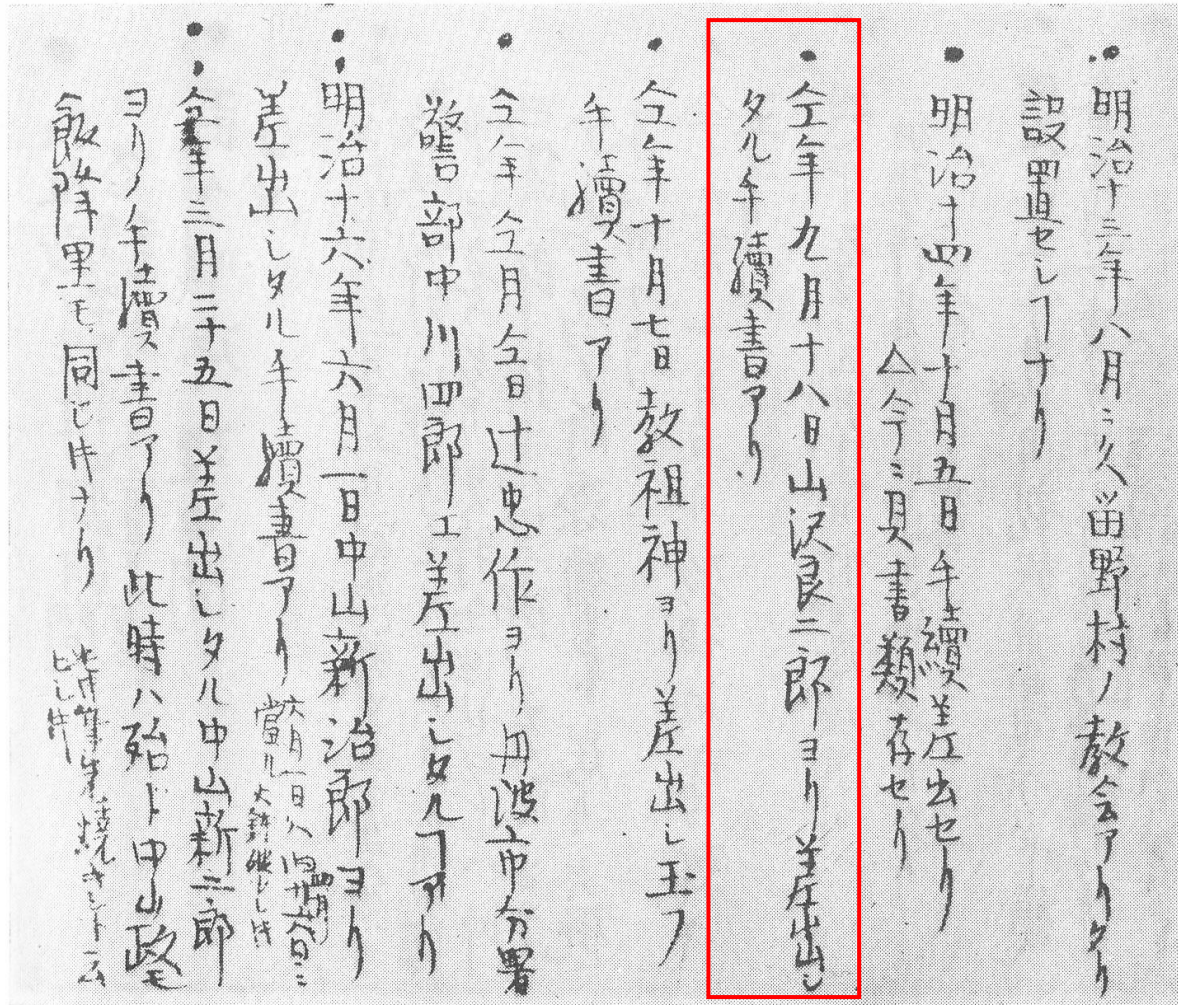 明治十三年八月ニ久留野村ノ教会アリタリ
設置セシヿナリ
明治十四年十月五日手續差出セリ
△今ニ其書類存セリ
仝年九月十八日山沢良二郎ヨリ差出シ
タル手續書アリ
仝年十月七日教祖神ヨリ差出シ玉フ
手續書アリ
仝年仝月仝日辻忠作ヨリ丹波市分署
警部中川四郎エ差出シタルヿアリ
明治十六年六月一日中山新治郎ヨリ
差出シタル手續書アリ
六月一日ハ旧四月廿六日ニ
當ル
仝年三月二十五日差出シタル中山新二郎
ヨリノ手續書アリ此時ハ殆ド中山政モ
飯降里モ同じ